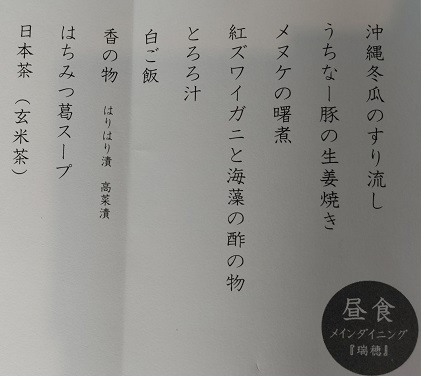 沖縄冬瓜のすり流し
うちなー豚の生姜焼き
メヌケの曙煮
紅ズワイガニと海藻の酢の物
とろろ汁
白ご飯
香の物　はりはり漬　高菜漬
はちみつ葛スープ
日本茶（玄米茶）
昼食
メインダイニング
『瑞穂』